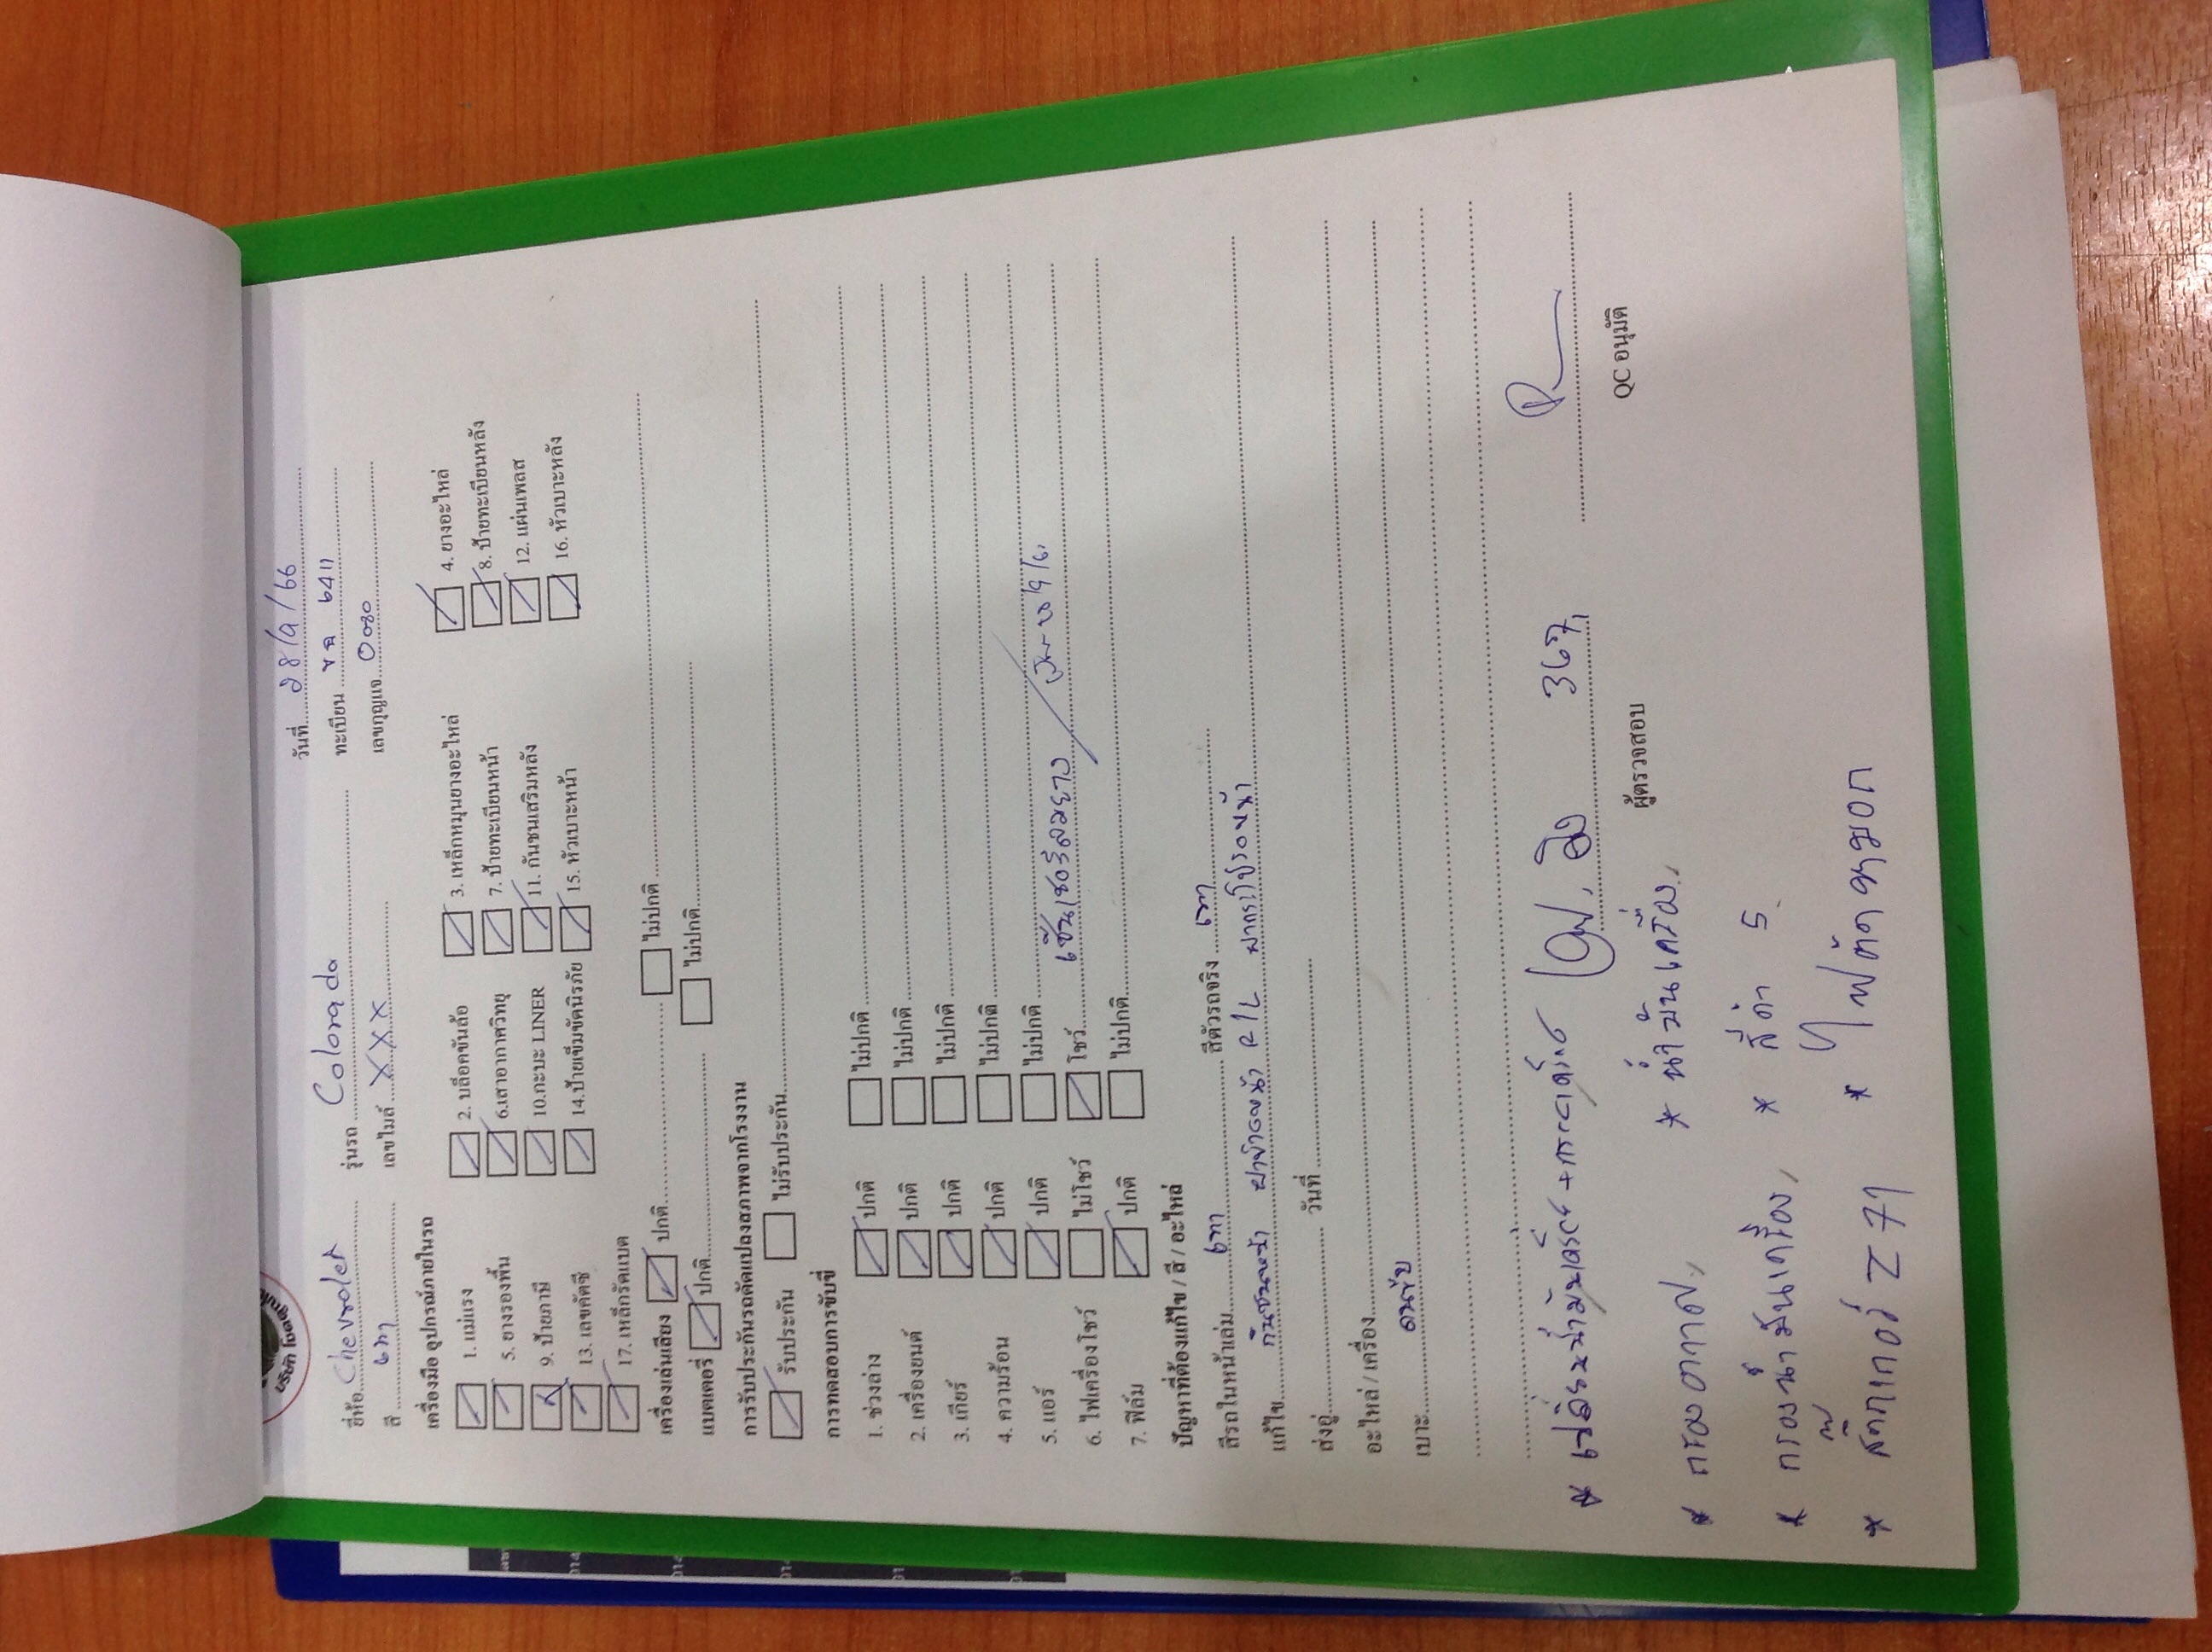 วันที่ 28/9/66
ยี่ห้อ Chevrolet รุ่นรถ Colorado ทะเบียน 6411
สี เทา เลขไมล์ XXX เลขกุญแจ 0080
เครื่องมือ อุปกรณ์ภายในรถ
1. แม่แรง 2. บล็อคขันล้อ 3. เหล็กหมุนยางอะไหล่ 4. ยางอะไหล่
5. ยางรองพื้น 6.เสาอากาศวิทยุ 7. ป้ายทะเบียนหน้า 8. ป้ายทะเบียนหลัง
9. ป้ายภาษี 10.กะบะ LINER 11. กันชนเสริมหลัง 12. แผ่นเพลส
13. เลขคัดซี 14.ป้ายเข็มขัดนิรภัย 15. หัวเบาะหน้า 16. หัวเบาะหลัง
17. เหล็กรัดแบต
เครื่องเล่นเสียง ปกติ ไม่ปกติ
แบตเตอรี่ ปกติ ไม่ปกติ
การรับประกันรถดัดแปลงสภาพจากโรงงาน
รับประกัน ไม่รับประกัน
การทดสอบการขับขี่
1. ช่วงล่าง ปกติ ไม่ปกติ
2. เครื่องยนต์ ปกติ ไม่ปกติ
3. เกียร์ ปกติ ไม่ปกติ
4. ความร้อน ปกติ ไม่ปกติ
5. แอร์ ปกติ ไม่ปกติ
6. ไฟเครื่องโชว์ ไม่โชว์ โชว์ เซ็นเซอร์ลมยาง
7. ฟิล์ม ปกติ ไม่ปกติ
ปัญหาที่ต้องแก้ไข / สี / อะไหล่
สีรถในหน้าเล่ม เทา สีตัวรถจริง เทา
แก้ไข กันชนหน้า R/L ฝากระโปรงหน้า
ส่งอู่ วันที่
อะไหล่ / เครื่อง
เบาะ คนขับ
* เปลี่ยนน้ำมันเกียร์ + 367
ผู้ตรวจสอบ QC อนุมัติ
* กรองอากาศ * น้ำมันเครื่อง
* กรองน้ำมันเครื่อง * สีดำ 5
* สติ๊กเกอร์ Z 71 * ไฟตัดหมอก